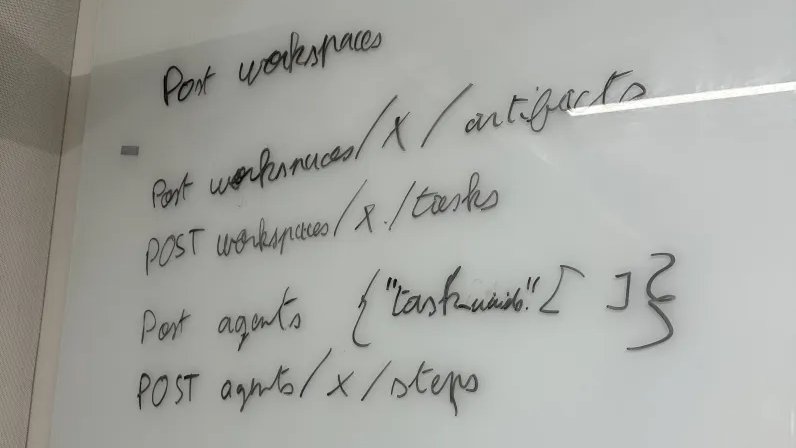 Post workspaces
Post workspaces/X/artifacts
POST workspaces/X/tasks
Post agents {"task_uuids":[ ]}
POST agents/X/steps